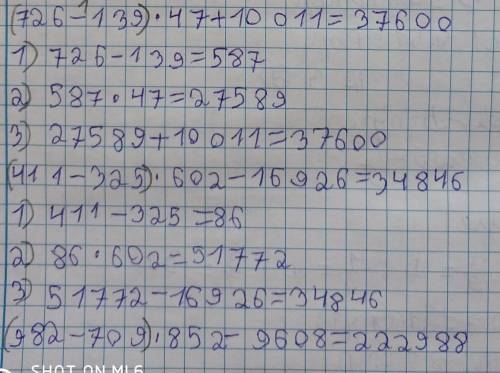 (726-139)·47+10 011=37600
1) 726-139=587
2) 587·47=27589
3) 27589+10011=37600
(411-325)·602-16926=34846
1) 411-325=86
2) 86·602=51772
3) 51772-16926=34846
(982-709)·852-9608=222988
SHOT ON MI 6